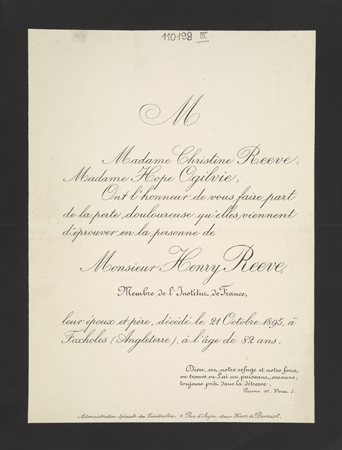 110198 III
M
Madame Christine Reeve,
Madame Hope Ogilvie,
Ont l'honneur de vous faire part
de la perte douloureuse qu'elles viennent
d'éprouver en la personne de
Monsieur Henry Reeve,
Membre de l'Institut de France,
leur époux et père, décédé le 21 Octobre 1895, à
Foxholes (Angleterre), à l'âge de 82 ans.
Dieu est notre refuge et notre force,
on trouve en Lui un puissant secours;
toujours prêt dans la détresse.
Psaume 46. Verset 1.
Administration Spéciale des Funérailles, 8 Rue d'Anjou, Maison Henri de Borniol.